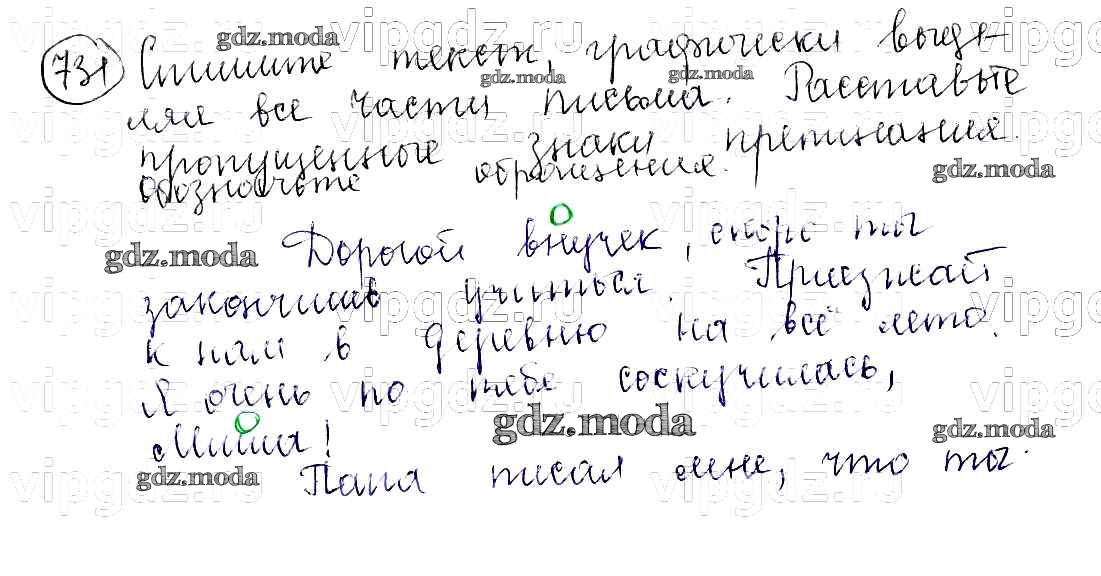 731 Спишите текст, графически выде-
ляя все части письма. Расставьте
пропущенные знаки препинания.
Обозначьте обращения.
Дорогой внучек, скоро ты
закончишь учиться. Приезжай
к нам в деревню на всё лето.
Я очень по тебе соскучилась,
Миша!
Папа писал мне, что ты
gdz.moda
vipgdz.ru